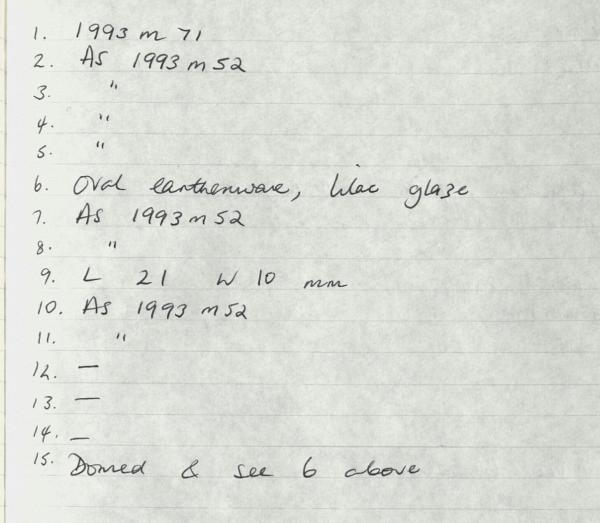 1. 1993 m 71
2. As 1993 m 52
3. "
4. "
5. "
6. Oval earthenware, lilac glaze
7. As 1993 m 52
8. "
9. L 21 W 10 mm
10. As 1993 m 52
11. "
12. —
13. —
14. —
15. Domed & see 6 above